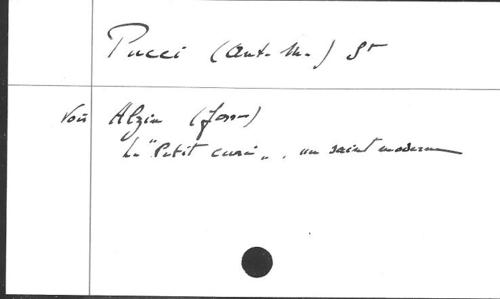 Pucci (Ant. M.) St
Voir Alzin (Josse)
Le "Petit curé", un saint moderne